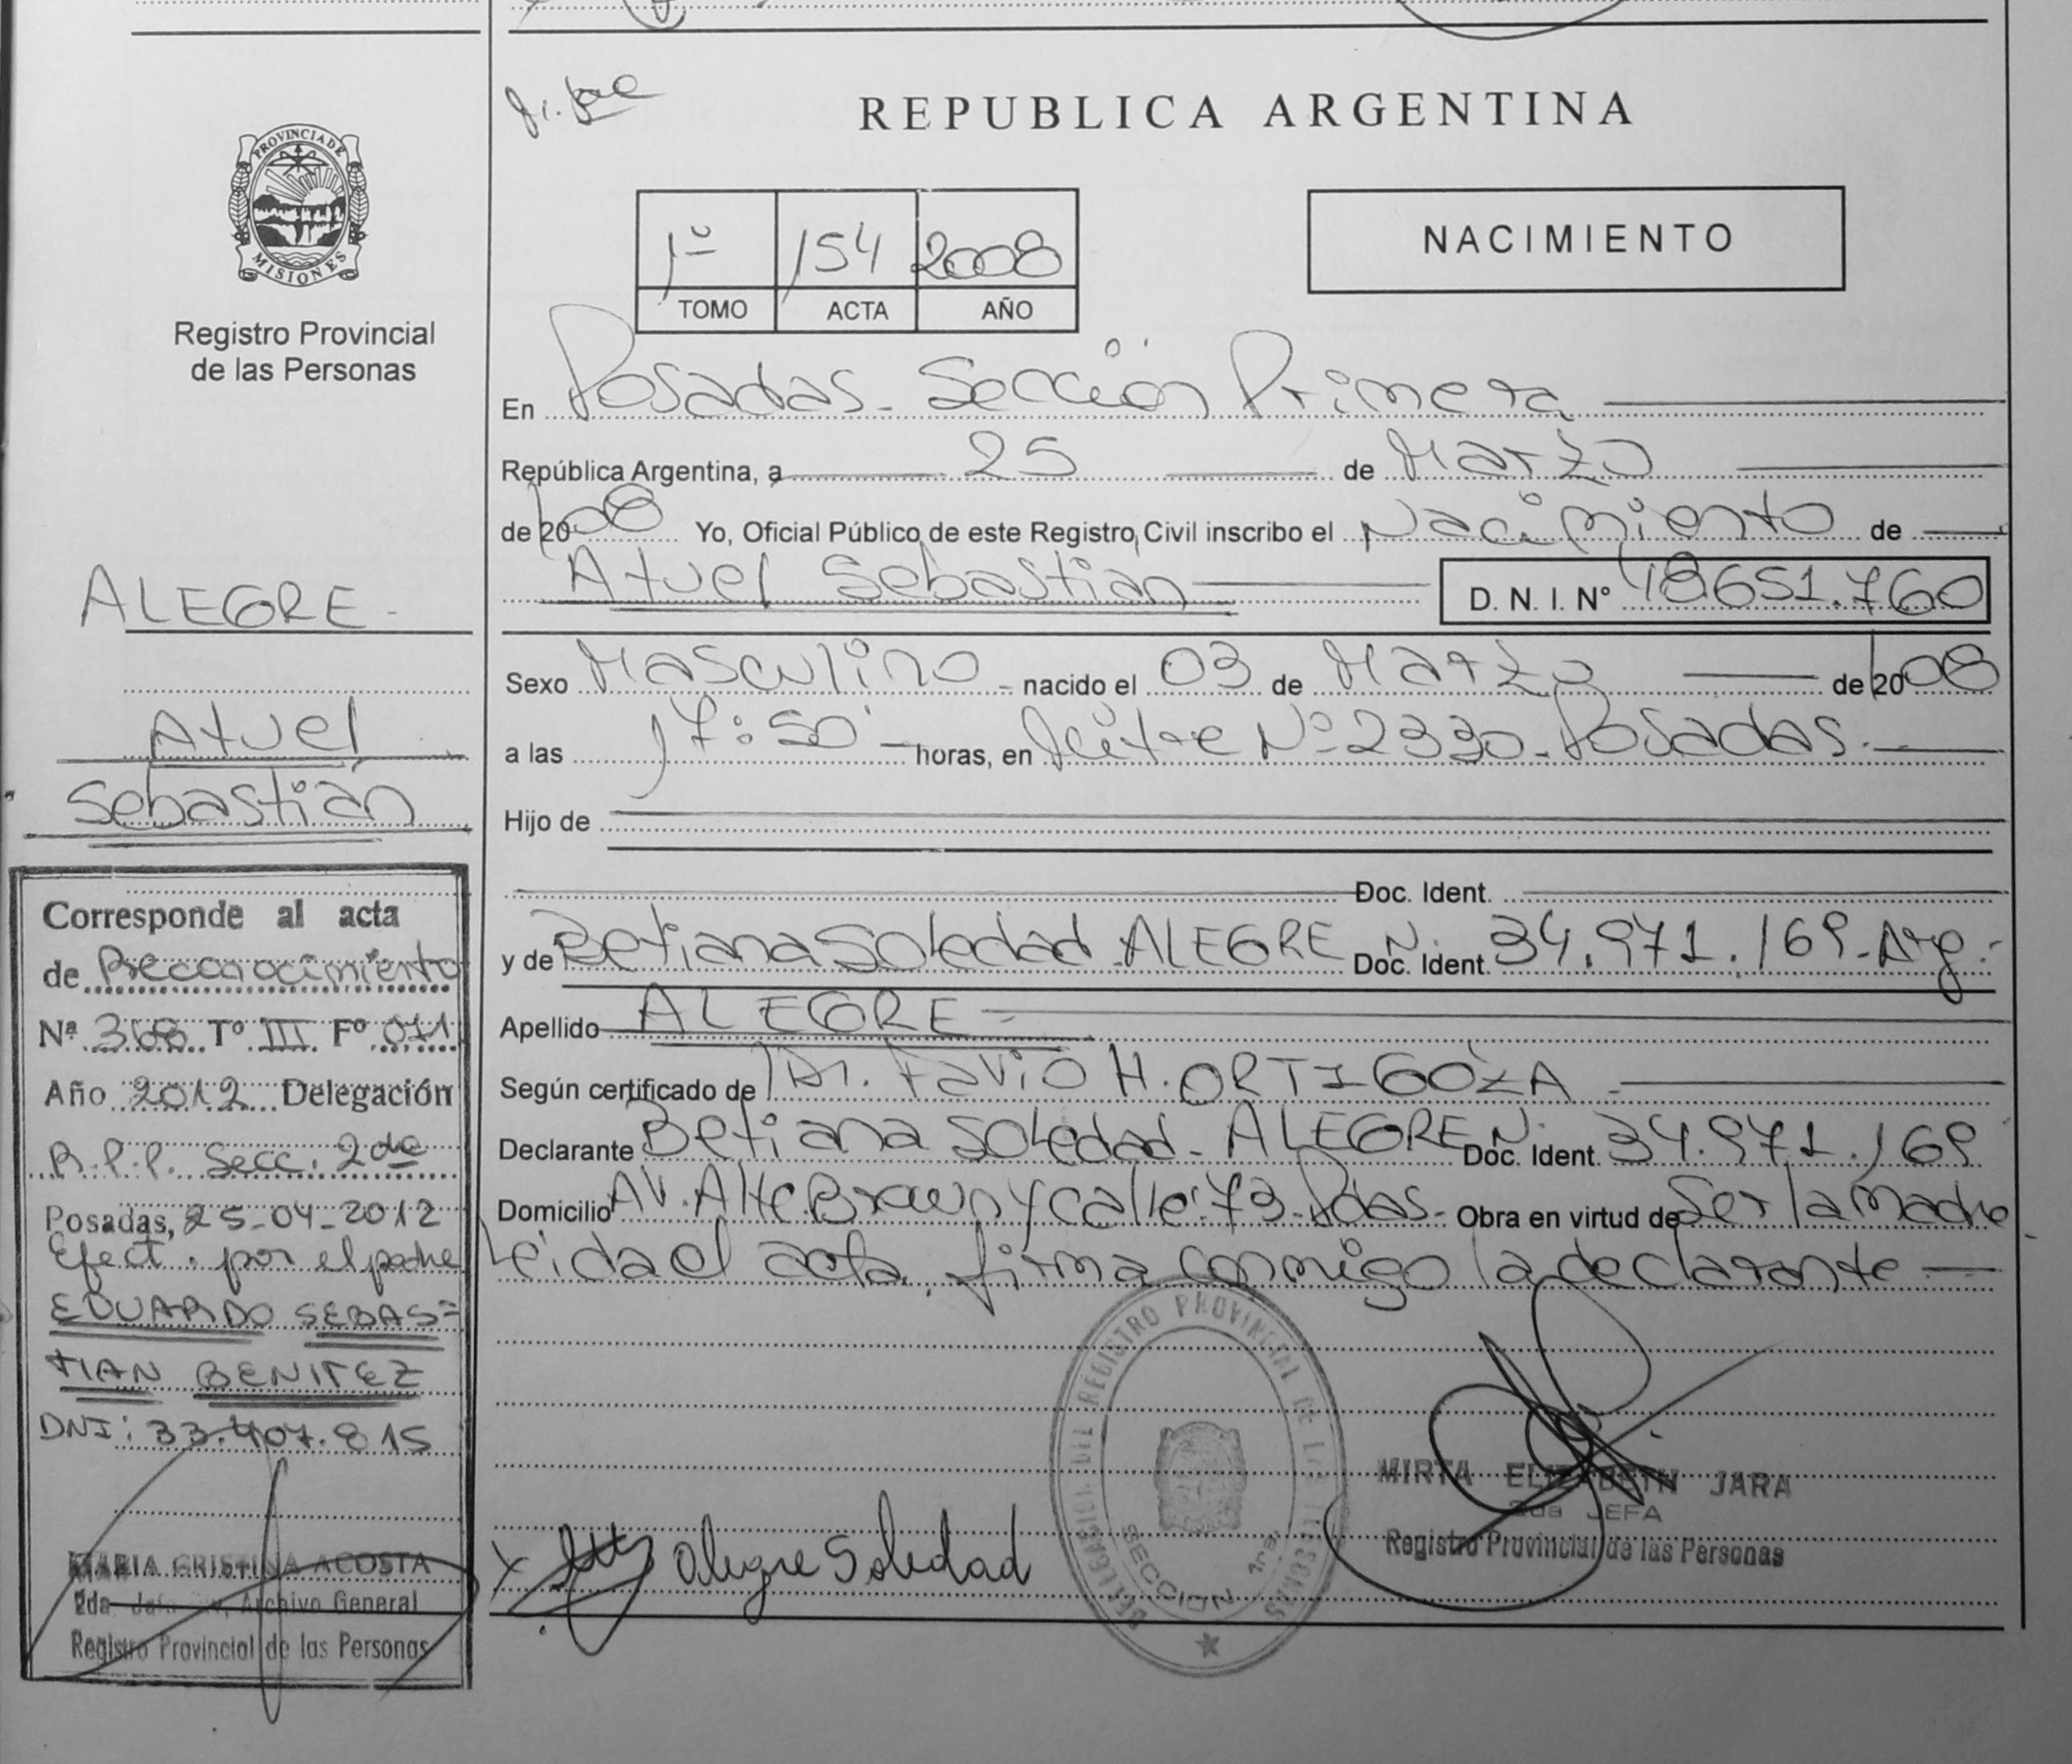 REPUBLICA ARGENTINA
PROVINCIA DE
MISIONES
Registro Provincial
de las Personas
1º 154 2008
TOMO ACTA AÑO
NACIMIENTO
En Posadas - Sección Primera
República Argentina, a 25 de Marzo
de 2008 Yo, Oficial Público de este Registro Civil inscribo el Nacimiento de
Atuel Sebastián D. N. I. Nº 48651.760
Sexo Masculino nacido el 03 de Marzo de 2008
a las 17:50 horas, en Mitre Nº 2330 - Posadas.
Hijo de
Doc. Ident.
y de Betiana Soledad ALEGRE Doc. N. Ident. 34.971.169 - Arg.-
Apellido ALEGRE
Según certificado de Dr. Favio H. ORTIGOZA
Declarante Betiana Soledad - ALEGRE Doc. N. Ident. 34.971.169
Domicilio AV. Alte. Brown y calle: 73 - Pdas - Obra en virtud de Ser la Madre
Leida el acta, firma conmigo la declarante
ALEGRE -
Atuel
Sebastián
Corresponde al acta
de Reconocimiento
Nª 366 Tº III Fº 071
Año 2012 Delegación
R.P.P. Secc. 2da
Posadas, 25-04-2012
Efect. por el padre
EDUARDO SEBAS=
TIAN BENITEZ
DNI: 33.407.815
MARIA CRISTINA ACOSTA
2da Archivo General
Registro Provincial de las Personas
X Alegre Soledad
DELEGACION DEL REGISTRO PROVINCIAL DE LAS PERSONAS
SECCION 1ra
MIRTA ELIZABETH JARA
2da JEFA
Registro Provincial de las Personas